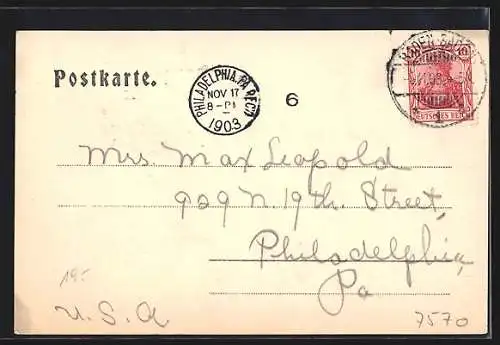 Postkarte.
PHILADELPHIA, PA. REC'D
NOV 17
8-PM
1903
6
BADEN-BADEN
DEUTSCHES REICH
Miss Max Leopold
929 N. 19th. Street,
Philadelphia,
Pa
U.S.A
7570